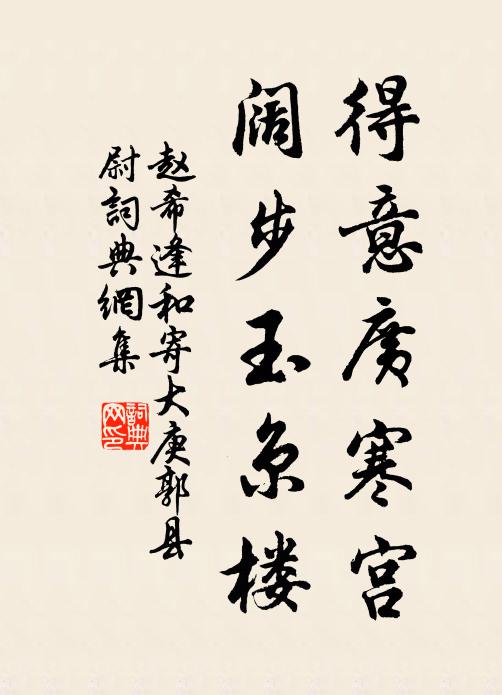 得意广寒宫
阔步玉京楼
赵希逢和寄大庾郭县
尉詞典網集
詞典
网印